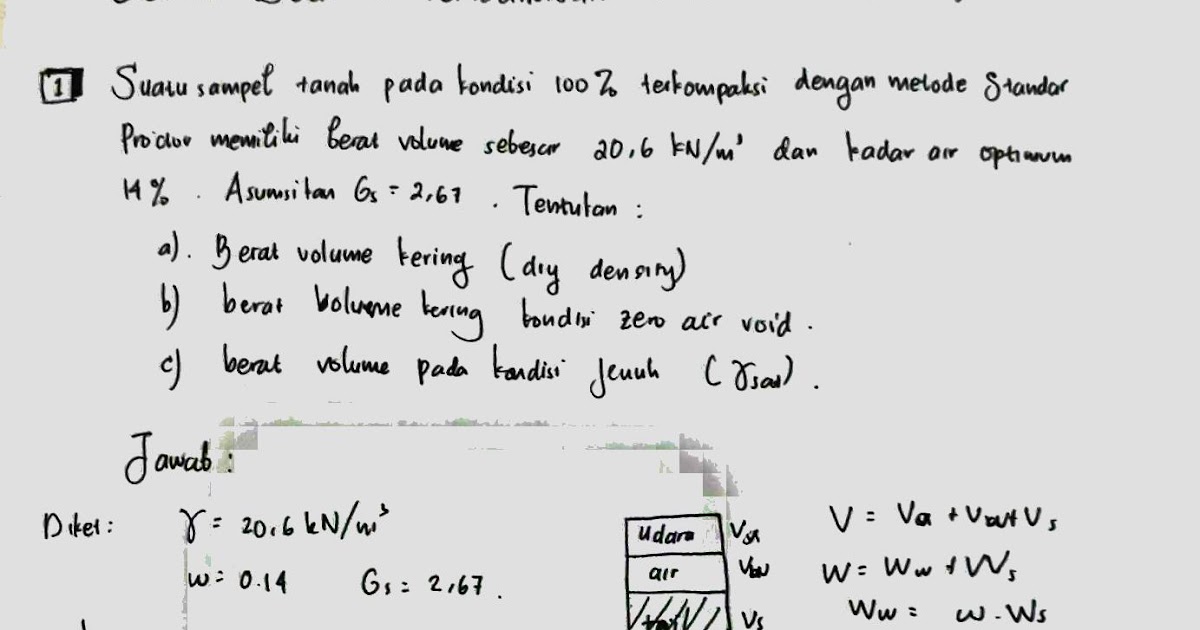 1 Suatu sampel tanah pada kondisi 100% terkompaksi dengan metode Standar
Proctor memiliki berat volume sebesar 20,6 kN/m³ dan kadar air optimum
14%. Asumsikan Gs = 2,67. Tentukan :
a). Berat volume kering (dry density)
b) berat volume kering kondisi zero air void.
c) berat volume pada kondisi jenuh (γsat).
Jawab :
Diket : γ = 20.6 kN/m³
w = 0.14 Gs = 2,67.
Udara Va
air Vw
Vs
V = Va + Vw + Vs
W = Ww + Ws
Ww = w . Ws